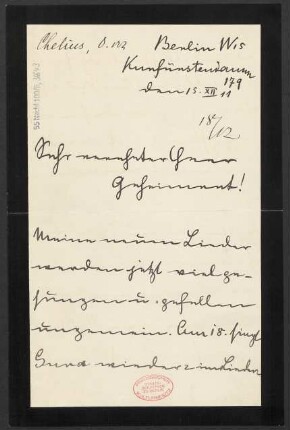 Chelius, O. v.
Berlin W15
Kurfürstendamm
179
den 15. XII 11
18/12
Sehr verehrter Herr
Geheimrat!
Meine neuen Lieder
werden jetzt viel ge-
sungen u. gefallen
ungemein. Am 18. singt
wieder 2 im Lieder